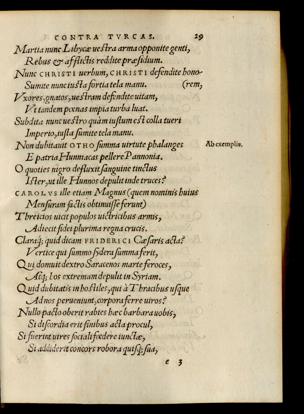 CONTRA TVRCAS. 29
Martia nunc Libycæ uestra arma opponite genti,
Rebus & afflictis reddite præsidium.
Nunc CHRISTI uerbum, CHRISTI defendite hono-
Sumite nunc iusta fortia tela manu. (rem,
Vxores, gnatos, uestram defendite uitam,
Vt tandem pœnas impia turba luat.
Subdita nunc uestro quàm iustum est colla tueri
Imperio, iusta sumite tela manu.
Non dubitauit OTHO summa uirtute phalanges Ab exemplis.
E patria Hunniacas pellere Pannonia.
O quoties nigro defluxit sanguine tinctus
Ister, ut ille Hunnos depulit inde truces?
CAROLVS ille etiam Magnus (quem nominis huius
Mensuram factis obtinuisse ferunt)
Threicios uicit populos uictricibus armis,
Adiecit fidei plurima regna crucis.
Claraq́; quid dicam FRIDERICI Cæsaris acta?
Vertice qui summo sydera summa ferit,
Qui domuit dextro Saracenos marte feroces,
Atq́; hos extremam depulit in Syriam.
Quid dubitatis in hostiles, qui à Thracibus usque
Ad nos perueniunt, corpora ferre uiros?
Nullo pacto oberit rabies hæc barbara uobis,
Si discordia erit finibus acta procul,
Si fuerint uires sociali fœdere iunctæ,
Si addiderit concors robora quisq́; sua,
e 3